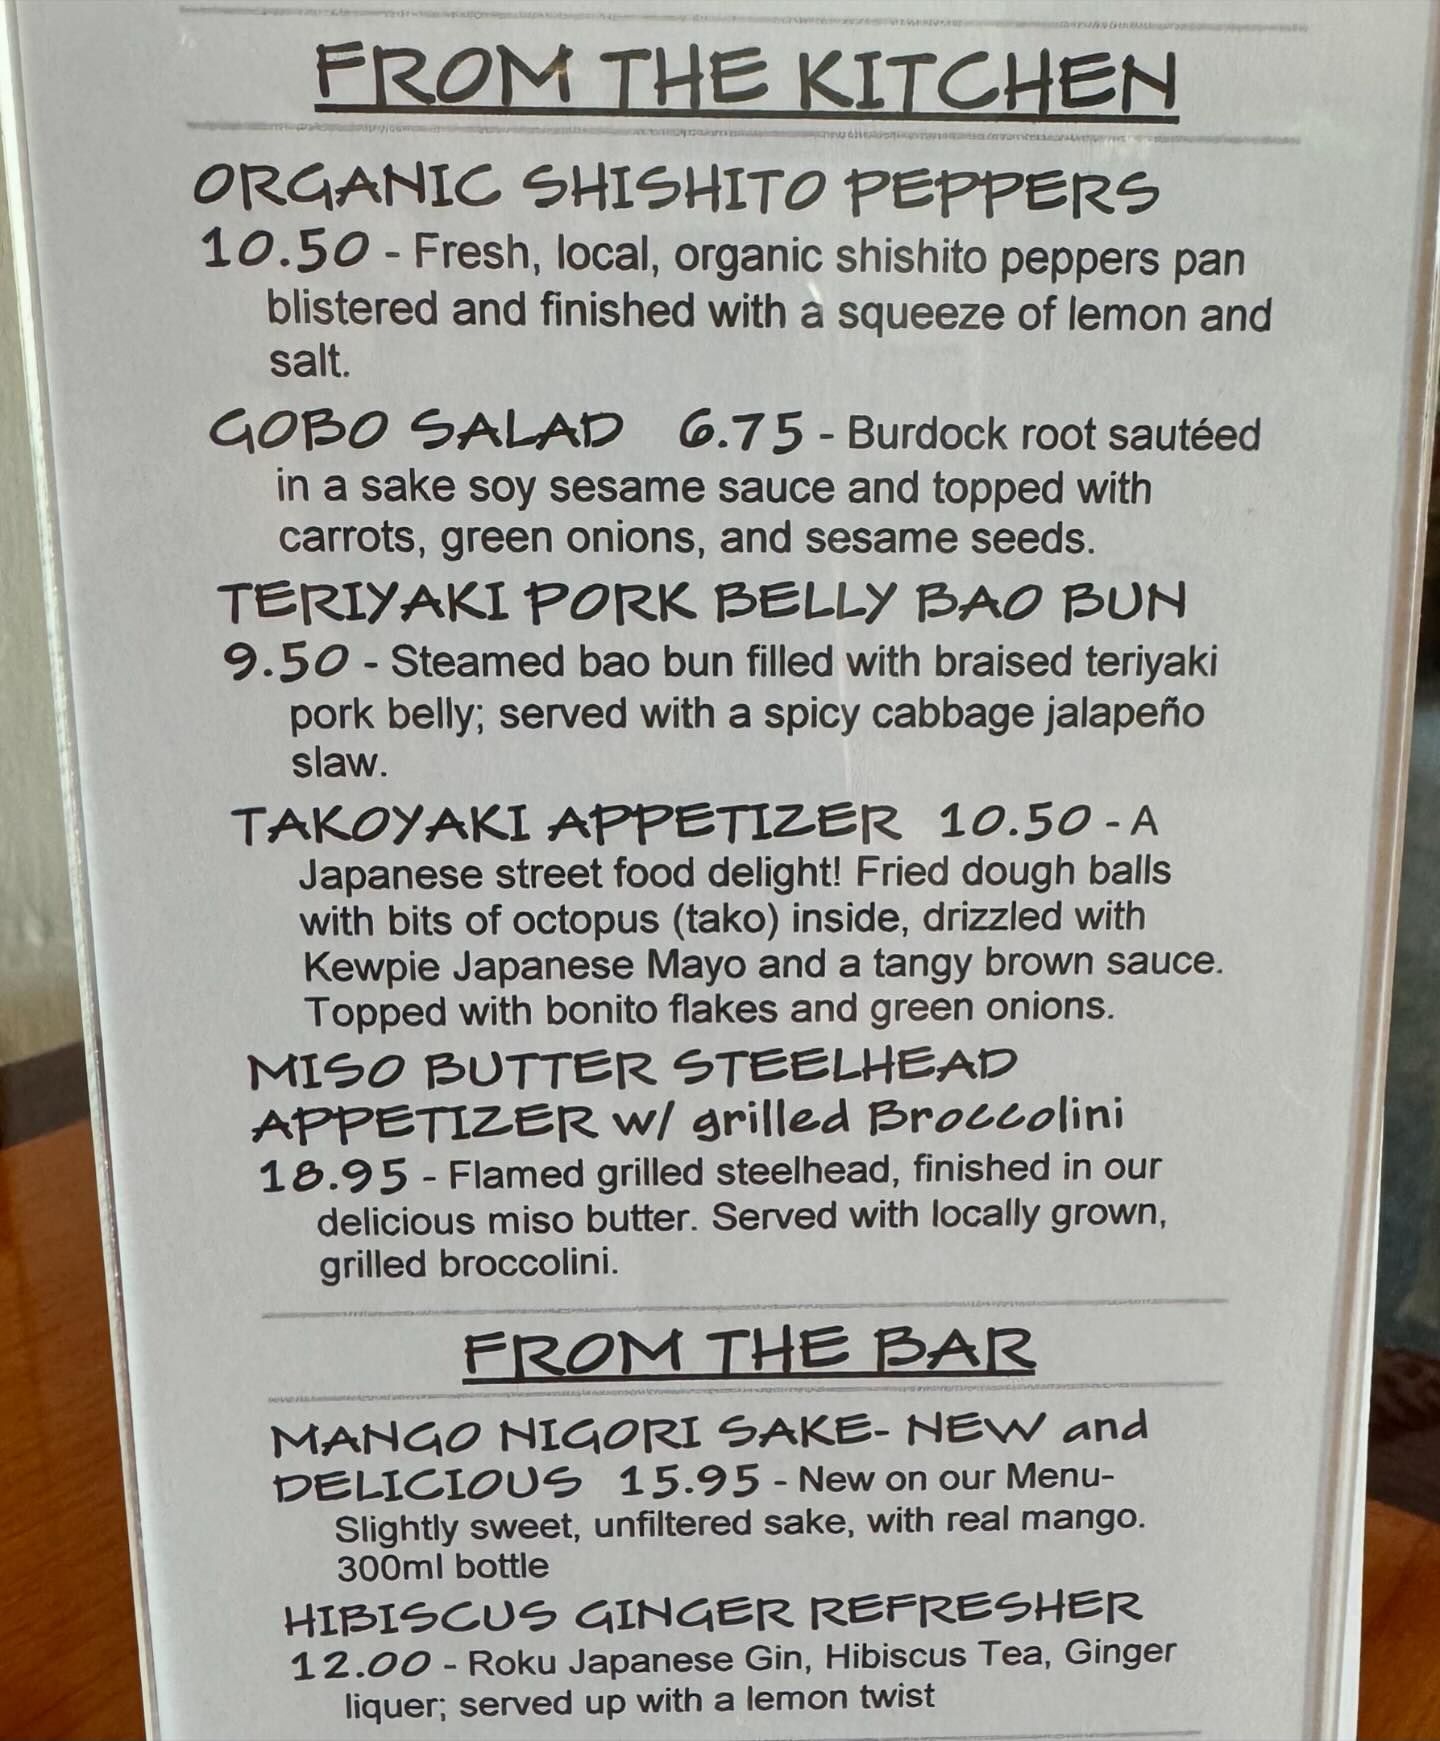 FROM THE KITCHEN
ORGANIC SHISHITO PEPPERS
10.50 - Fresh, local, organic shishito peppers pan
blistered and finished with a squeeze of lemon and
salt.
GOBO SALAD 6.75 - Burdock root sautéed
in a sake soy sesame sauce and topped with
carrots, green onions, and sesame seeds.
TERIYAKI PORK BELLY BAO BUN
9.50 - Steamed bao bun filled with braised teriyaki
pork belly; served with a spicy cabbage jalapeño
slaw.
TAKOYAKI APPETIZER 10.50 - A
Japanese street food delight! Fried dough balls
with bits of octopus (tako) inside, drizzled with
Kewpie Japanese Mayo and a tangy brown sauce.
Topped with bonito flakes and green onions.
MISO BUTTER STEELHEAD
APPETIZER w/ grilled Broccolini
18.95 - Flamed grilled steelhead, finished in our
delicious miso butter. Served with locally grown,
grilled broccolini.
FROM THE BAR
MANGO NIGORI SAKE- NEW and
DELICIOUS 15.95 - New on our Menu-
Slightly sweet, unfiltered sake, with real mango.
300ml bottle
HIBISCUS GINGER REFRESHER
12.00 - Roku Japanese Gin, Hibiscus Tea, Ginger
liquer; served up with a lemon twist